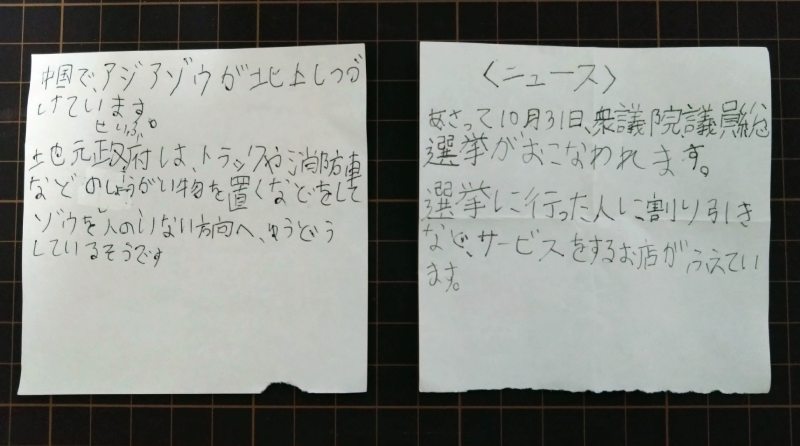 中国で、アジアゾウが北上しつづ
けています。
せいふ
地元政府は、トラックや消防車
などのしょうがい物を置くなどをして
ゾウを人のいない方向へ、ゆうどう
しているそうです
〈ニュース〉
あさって10月31日、衆議院議員総
選挙がおこなわれます。
選挙に行った人に割り引き
など、サービスをするお店がふえてい
ます。